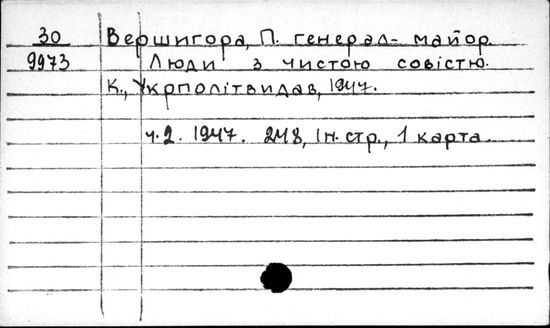 30 Вершигора, П. генерал- майор.
9973 Люди з чистою совістю.
К., Укрполітвидав, 1947.
ч.2. 1947. 248, Ін. стр., 1 карта